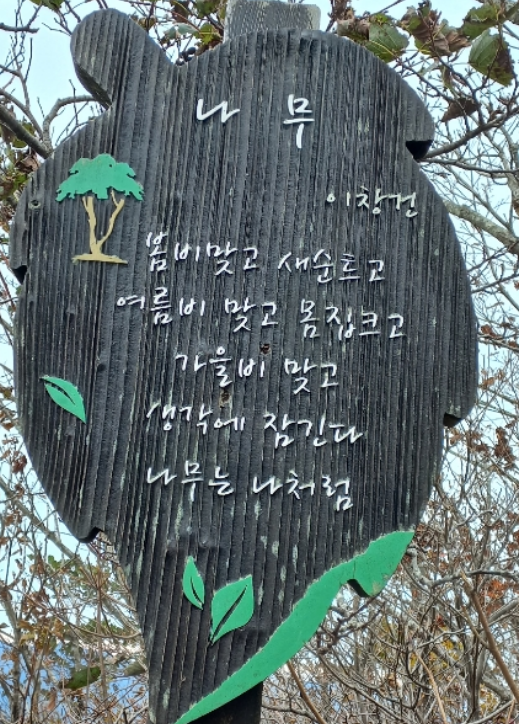 나 무
이창건
봄비맞고 새순트고
여름비 맞고 몸집크고
가을비 맞고
생각에 잠긴다
나무는 나처럼